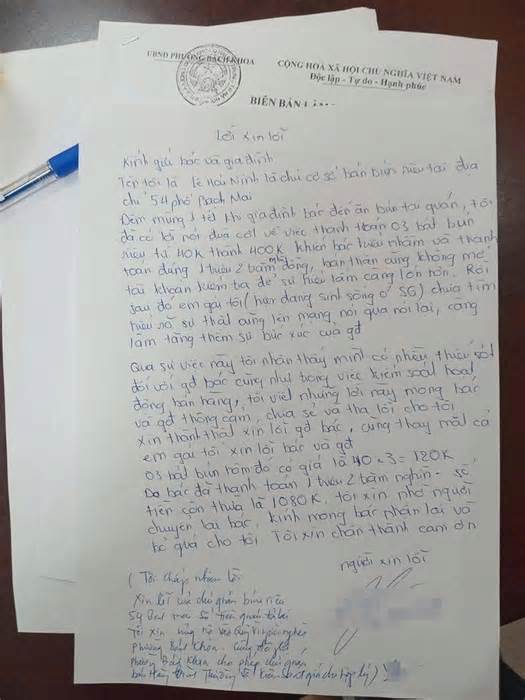 UBND PHƯỜNG BÁCH KHOA
CỘNG HOÀ XÃ HỘI CHỦ NGHĨA VIỆT NAM
Độc lập - Tự do - Hạnh phúc
BIÊN BẢN
Lời xin lỗi
Kính gửi bác và gia đình
Tên tôi là Lê Hải Ninh là chủ cơ sở bán bún riêu tại địa
chỉ 54 phố Bạch Mai
Đêm mùng 1 tết khi gia đình bác đến ăn bún tại quán, tôi
đã có lời nói đùa cợt về việc thanh toán 03 bát bún
riêu từ 40K thành 400K khiến bác hiểu nhầm và thanh
toán đúng 1 triệu 2 trăm đồng, bản thân cũng không mở
tài khoản kiểm tra để sự hiểu lầm càng lớn hơn. Rồi
sau đó em gái tôi (hiện đang sinh sống ở SG) chưa tìm
hiểu rõ sự thật cũng lên mạng nói qua nói lại, càng
làm tăng thêm sự bức xúc của gđ
Qua sự việc này tôi nhận thấy mình có nhiều thiếu sót
đối với gđ bác cũng như trong việc kiểm soát hoạt
động bán hàng, tôi viết những lời này mong bác
và gđ thông cảm, chia sẻ và tha lỗi cho tôi
xin thành thật xin lỗi gđ bác, cũng thay mặt cả
em gái tôi xin lỗi bác và gđ
03 bát bún hôm đó có giá là 40 . 3 = 120K
Do bác đã thanh toán 1 triệu 2 trăm nghìn - số
tiền còn thừa là 1080K. tôi xin nhờ người
chuyển lại bác, kính mong bác nhận lại và
bỏ qua cho tôi. Tôi xin chân thành cảm ơn
người xin lỗi
( Tôi chấp nhận lời
xin lỗi của chủ quán bún riêu
54 Bạch Mai số tiền quán trả lại
Tôi xin ủng hộ vào Quỹ Vì người nghèo
phường Bách Khoa.
phường Bách Khoa cho phép chủ quán
bán hàng